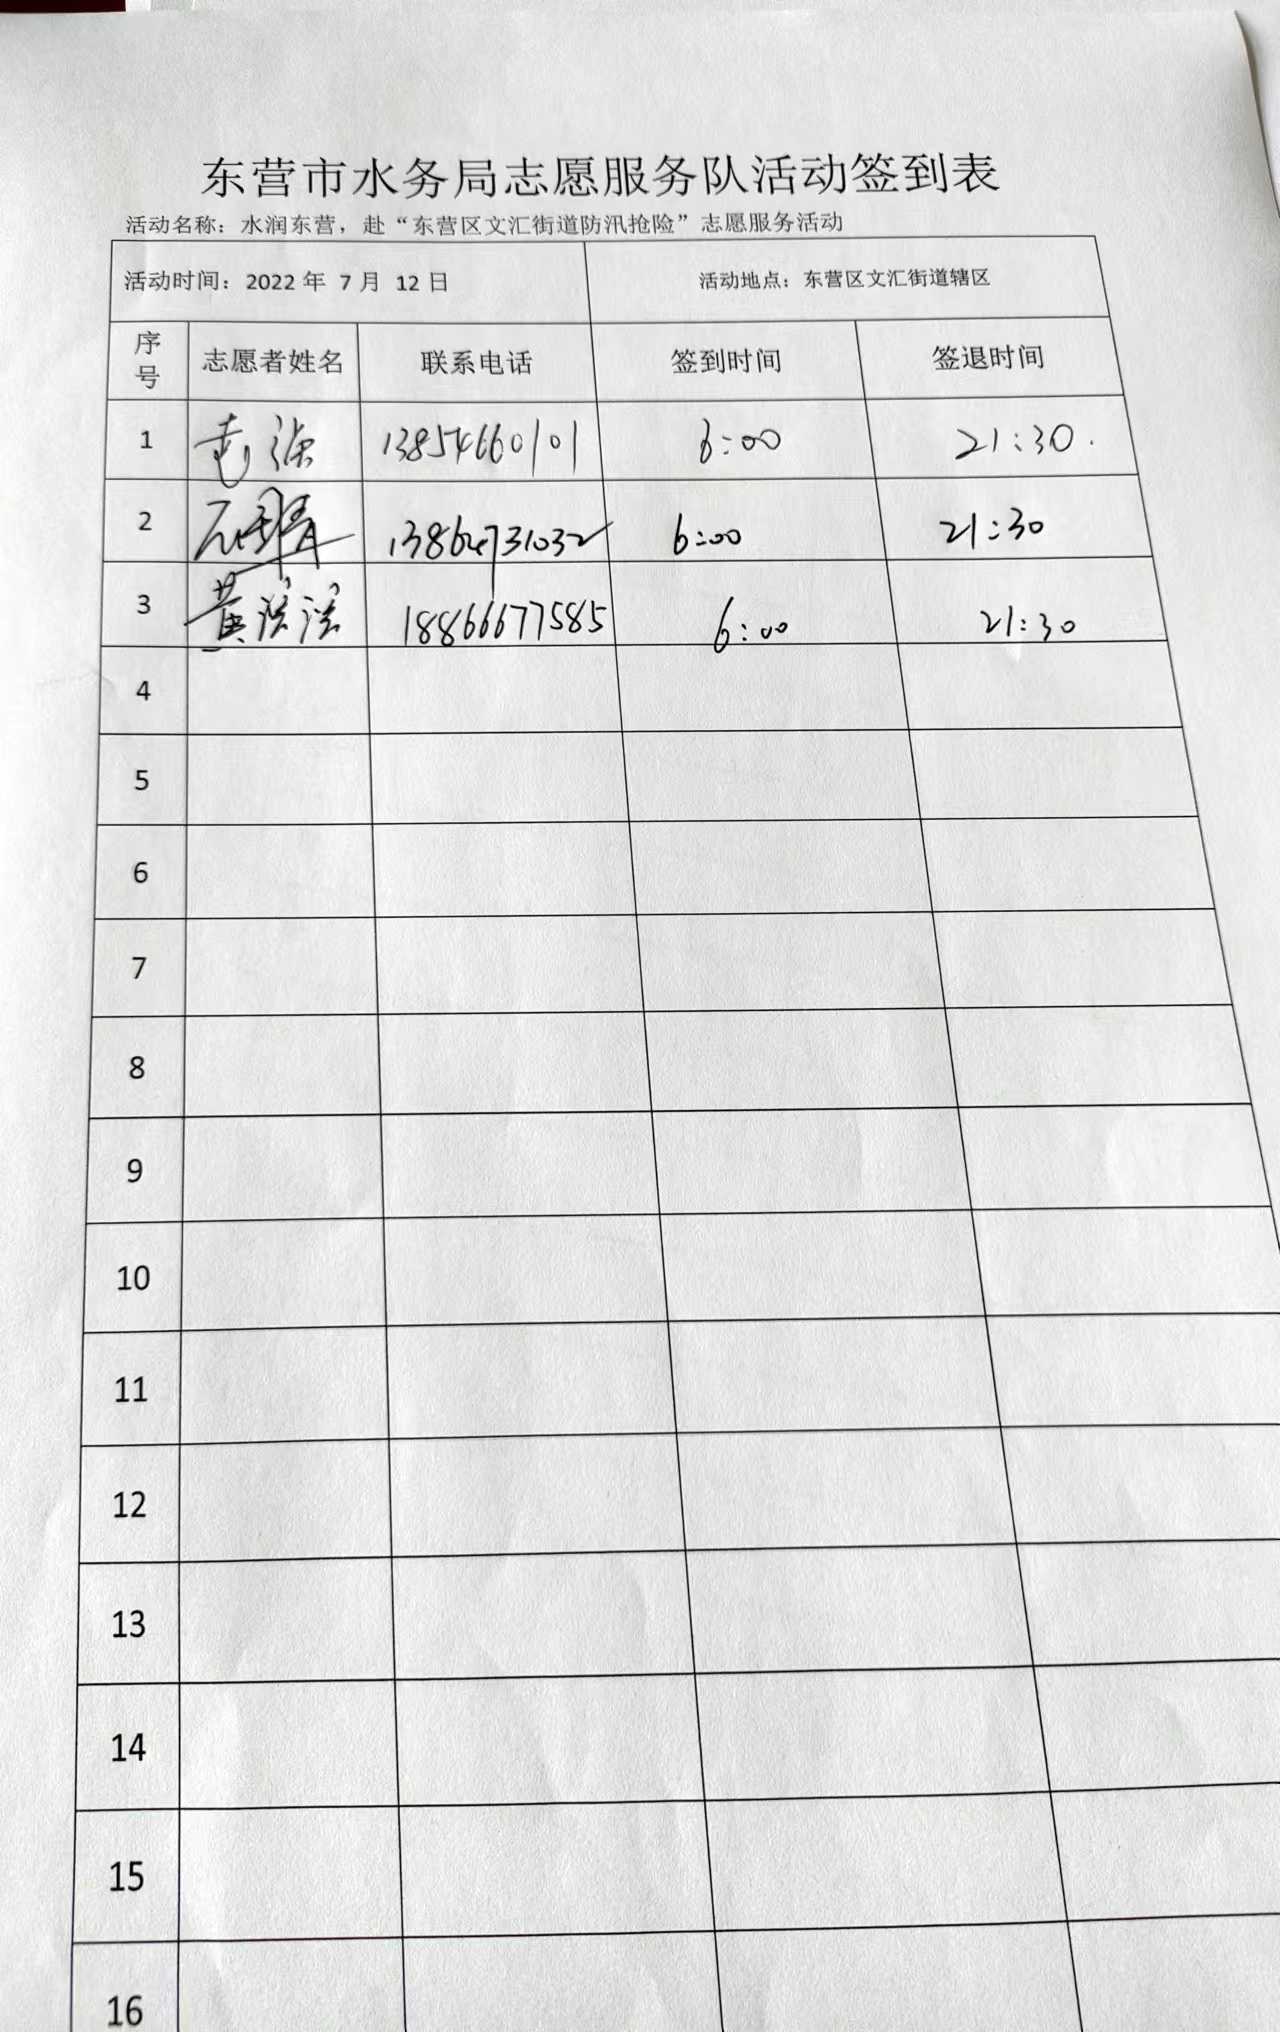 东营市水务局志愿服务队活动签到表
活动名称：水润东营，赴“东营区文汇街道防汛抢险”志愿服务活动
活动时间：2022 年 7 月 12 日 活动地点：东营区文汇街道辖区
序号 志愿者姓名 联系电话 签到时间 签退时间
1 13854660101 6:00 21:30.
2 6:00 21:30
3 黄 18866677585 6:00 21:30
4
5
6
7
8
9
10
11
12
13
14
15
16